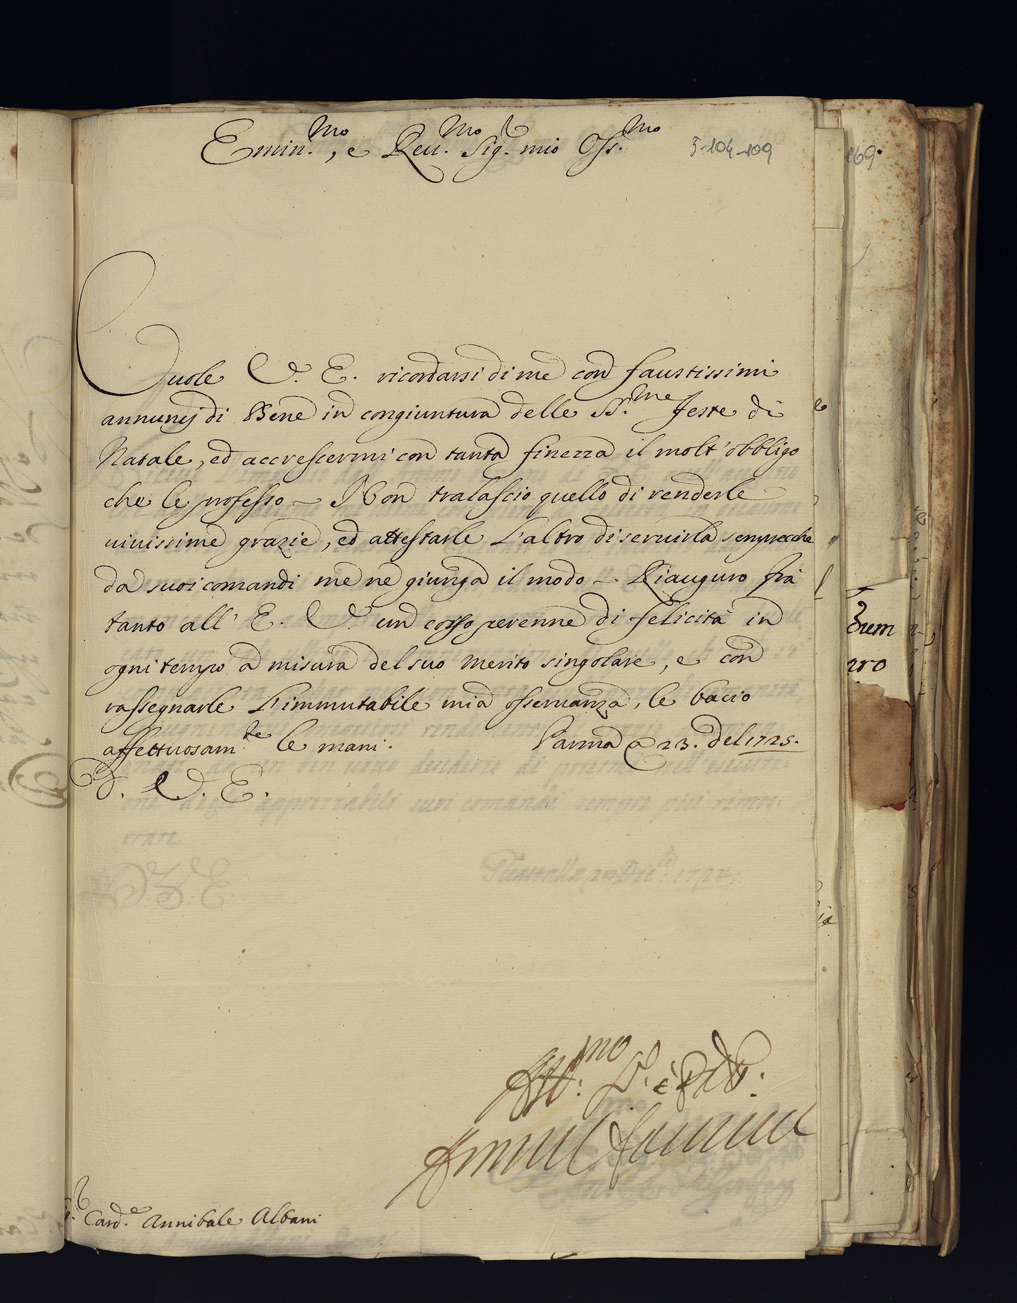 Emin.mo, e Reu.mo Sig.r mio Oss.mo
3-104-109
169.
Vuole V. E. ricordarsi di me con faustissimi
annunzj di Bene in congiuntura delle SS.me Feste di
Natale, ed accrescermi con tanta finezza il molt'obbligo
che le professo. Non tralascio quello di renderle
viuissime grazie, ed attestarle L'altro di seruirla sempre che
da suoi comandi me ne giunga il modo. Riauguro frà
tanto all' E. V. un corso perenne di felicità in
ogni tempo a misura del suo merito singolare, e con
rassegnarle L'immutabile mia osseruanza, le bacio
affettuosam.te le mani. Parma a 23. del 1725.
D. V. E.
Aff.mo
Card.e Annibale Albani